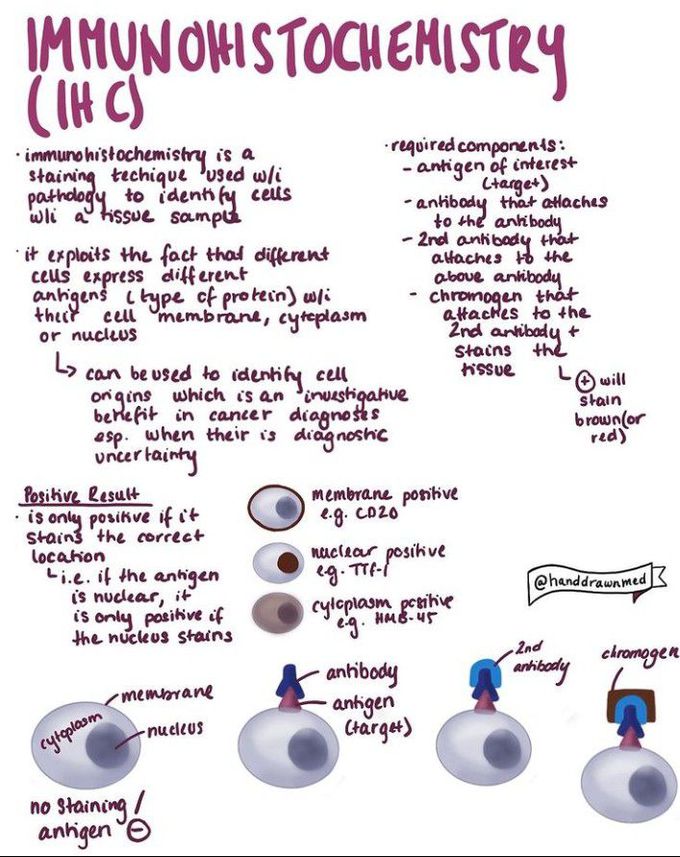 IMMUNOHISTOCHEMISTRY
(IHC)
· immunohistochemistry is a
staining techique used w/i
pathology to identify cells
w/i a tissue sample
· it exploits the fact that different
cells express different
antigens (type of protein) w/i
their cell membrane, cytoplasm
or nucleus
↳ can be used to identify cell
origins which is an investigative
benefit in cancer diagnoses
esp. when their is diagnostic
uncertainty
· required components:
- antigen of interest
(target)
- antibody that attaches
to the antibody
- 2nd antibody that
attaches to the
above antibody
- chromogen that
attaches to the
2nd antibody +
stains the
tissue
↳ ⊕ will
stain
brown (or
red)
Positive Result
· is only positive if it
stains the correct
location
↳ i.e. if the antigen
is nuclear, it
is only positive if
the nucleus stains
membrane positive
e.g. CD20
nuclear positive
e.g. TTf-1
cytoplasm positive
e.g. HMB-45
@handdrawnmed
membrane
cytoplasm
nucleus
no staining/
antigen ⊖
antibody
antigen
(target)
2nd
antibody
chromogen